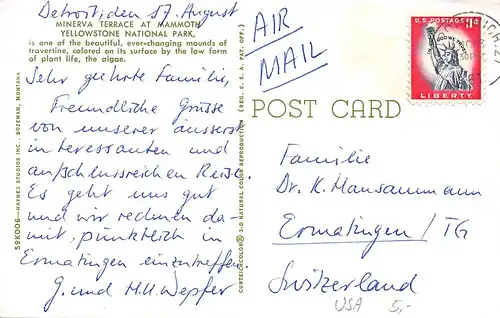 Detroit, den 17. August
MINERVA TERRACE AT MAMMOTH
YELLOWSTONE NATIONAL PARK,
is one of the beautiful, ever-changing mounds of
travertine, colored on its surface by the low form
of plant life, the algae.
Sehr geehrte Familie,
Freundliche Grüsse
von unserer äusserst
interessanten und
aufschlussreichen Reise.
Es geht uns gut
und wir rechnen da-
mit, pünktlich in
Ermatingen einzutreffen.
G. und M.U. Wepfer
59K006—HAYNES STUDIOS INC., BOZEMAN, MONTANA
CURTEICHCOLOR 3-D NATURAL COLOR REPRODUCTION (REG. U.S.A. PAT. OFF.)
AIR
MAIL
POST CARD
U.S. POSTAGE
IN GOD WE TRUST
LIBERTY
Familie
Dr. K. Hansammann
Ermatingen / TG
Switzerland
USA 5,-